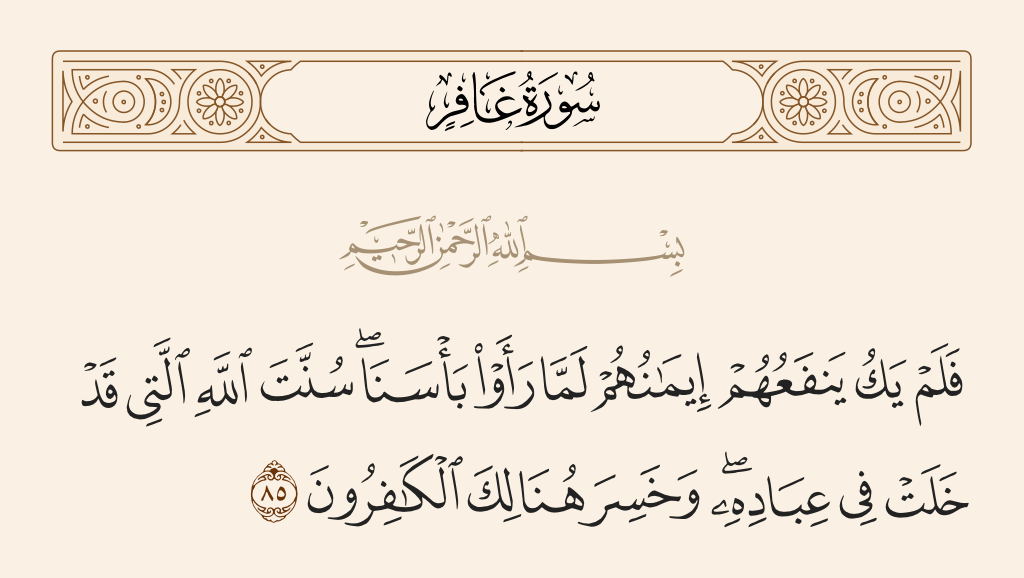 سُورَةُ غَافِرٍ
بِسْمِ ٱللَّهِ ٱلرَّحْمَٰنِ ٱلرَّحِيمِ
فَلَمْ يَكُ يَنفَعُهُمْ إِيمَٰنُهُمْ لَمَّا رَأَوْا۟ بَأْسَنَا ۖ سُنَّتَ ٱللَّهِ ٱلَّتِى قَدْ
خَلَتْ فِى عِبَادِهِۦ ۖ وَخَسِرَ هُنَالِكَ ٱلْكَٰفِرُونَ ٨٥